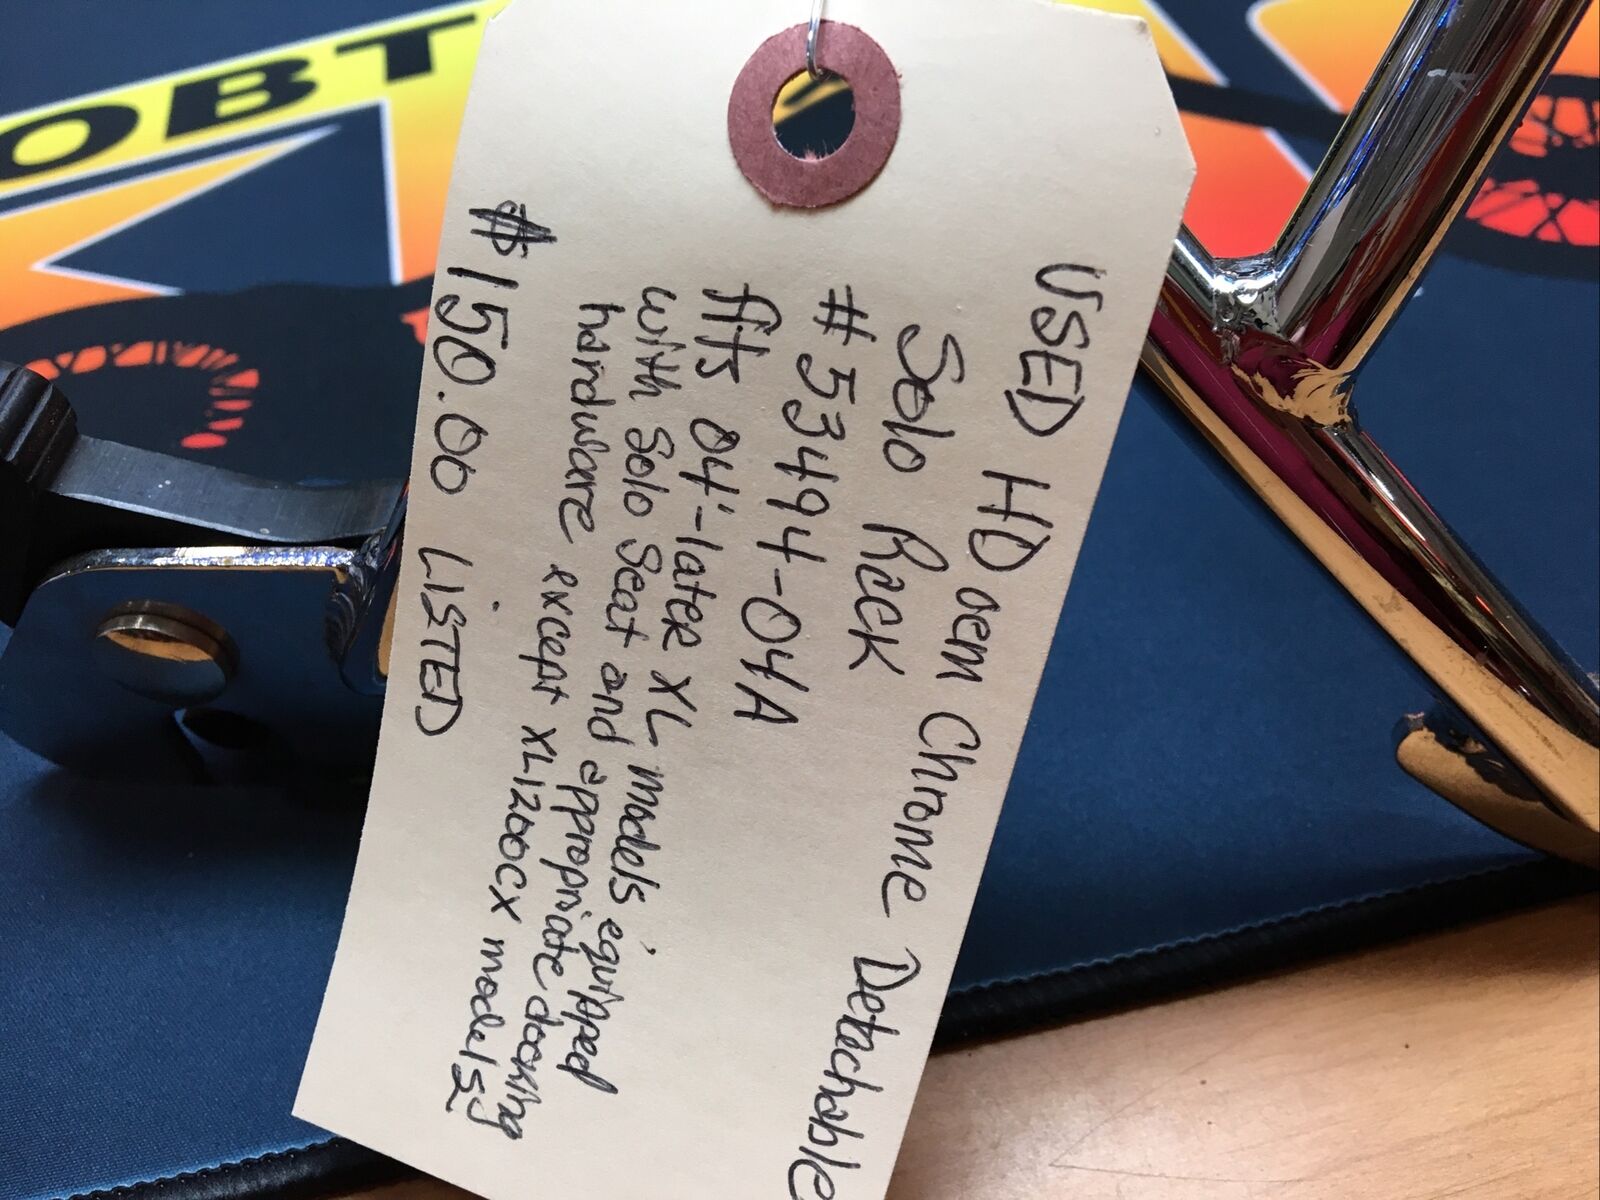 USED HD oem Chrome Detachable
Solo Rack
#53494-04A
fits 04'-later XL models equipped
with Solo Seat and appropriate docking
hardware except XL1200CX models
$150.00 LISTED
OBT